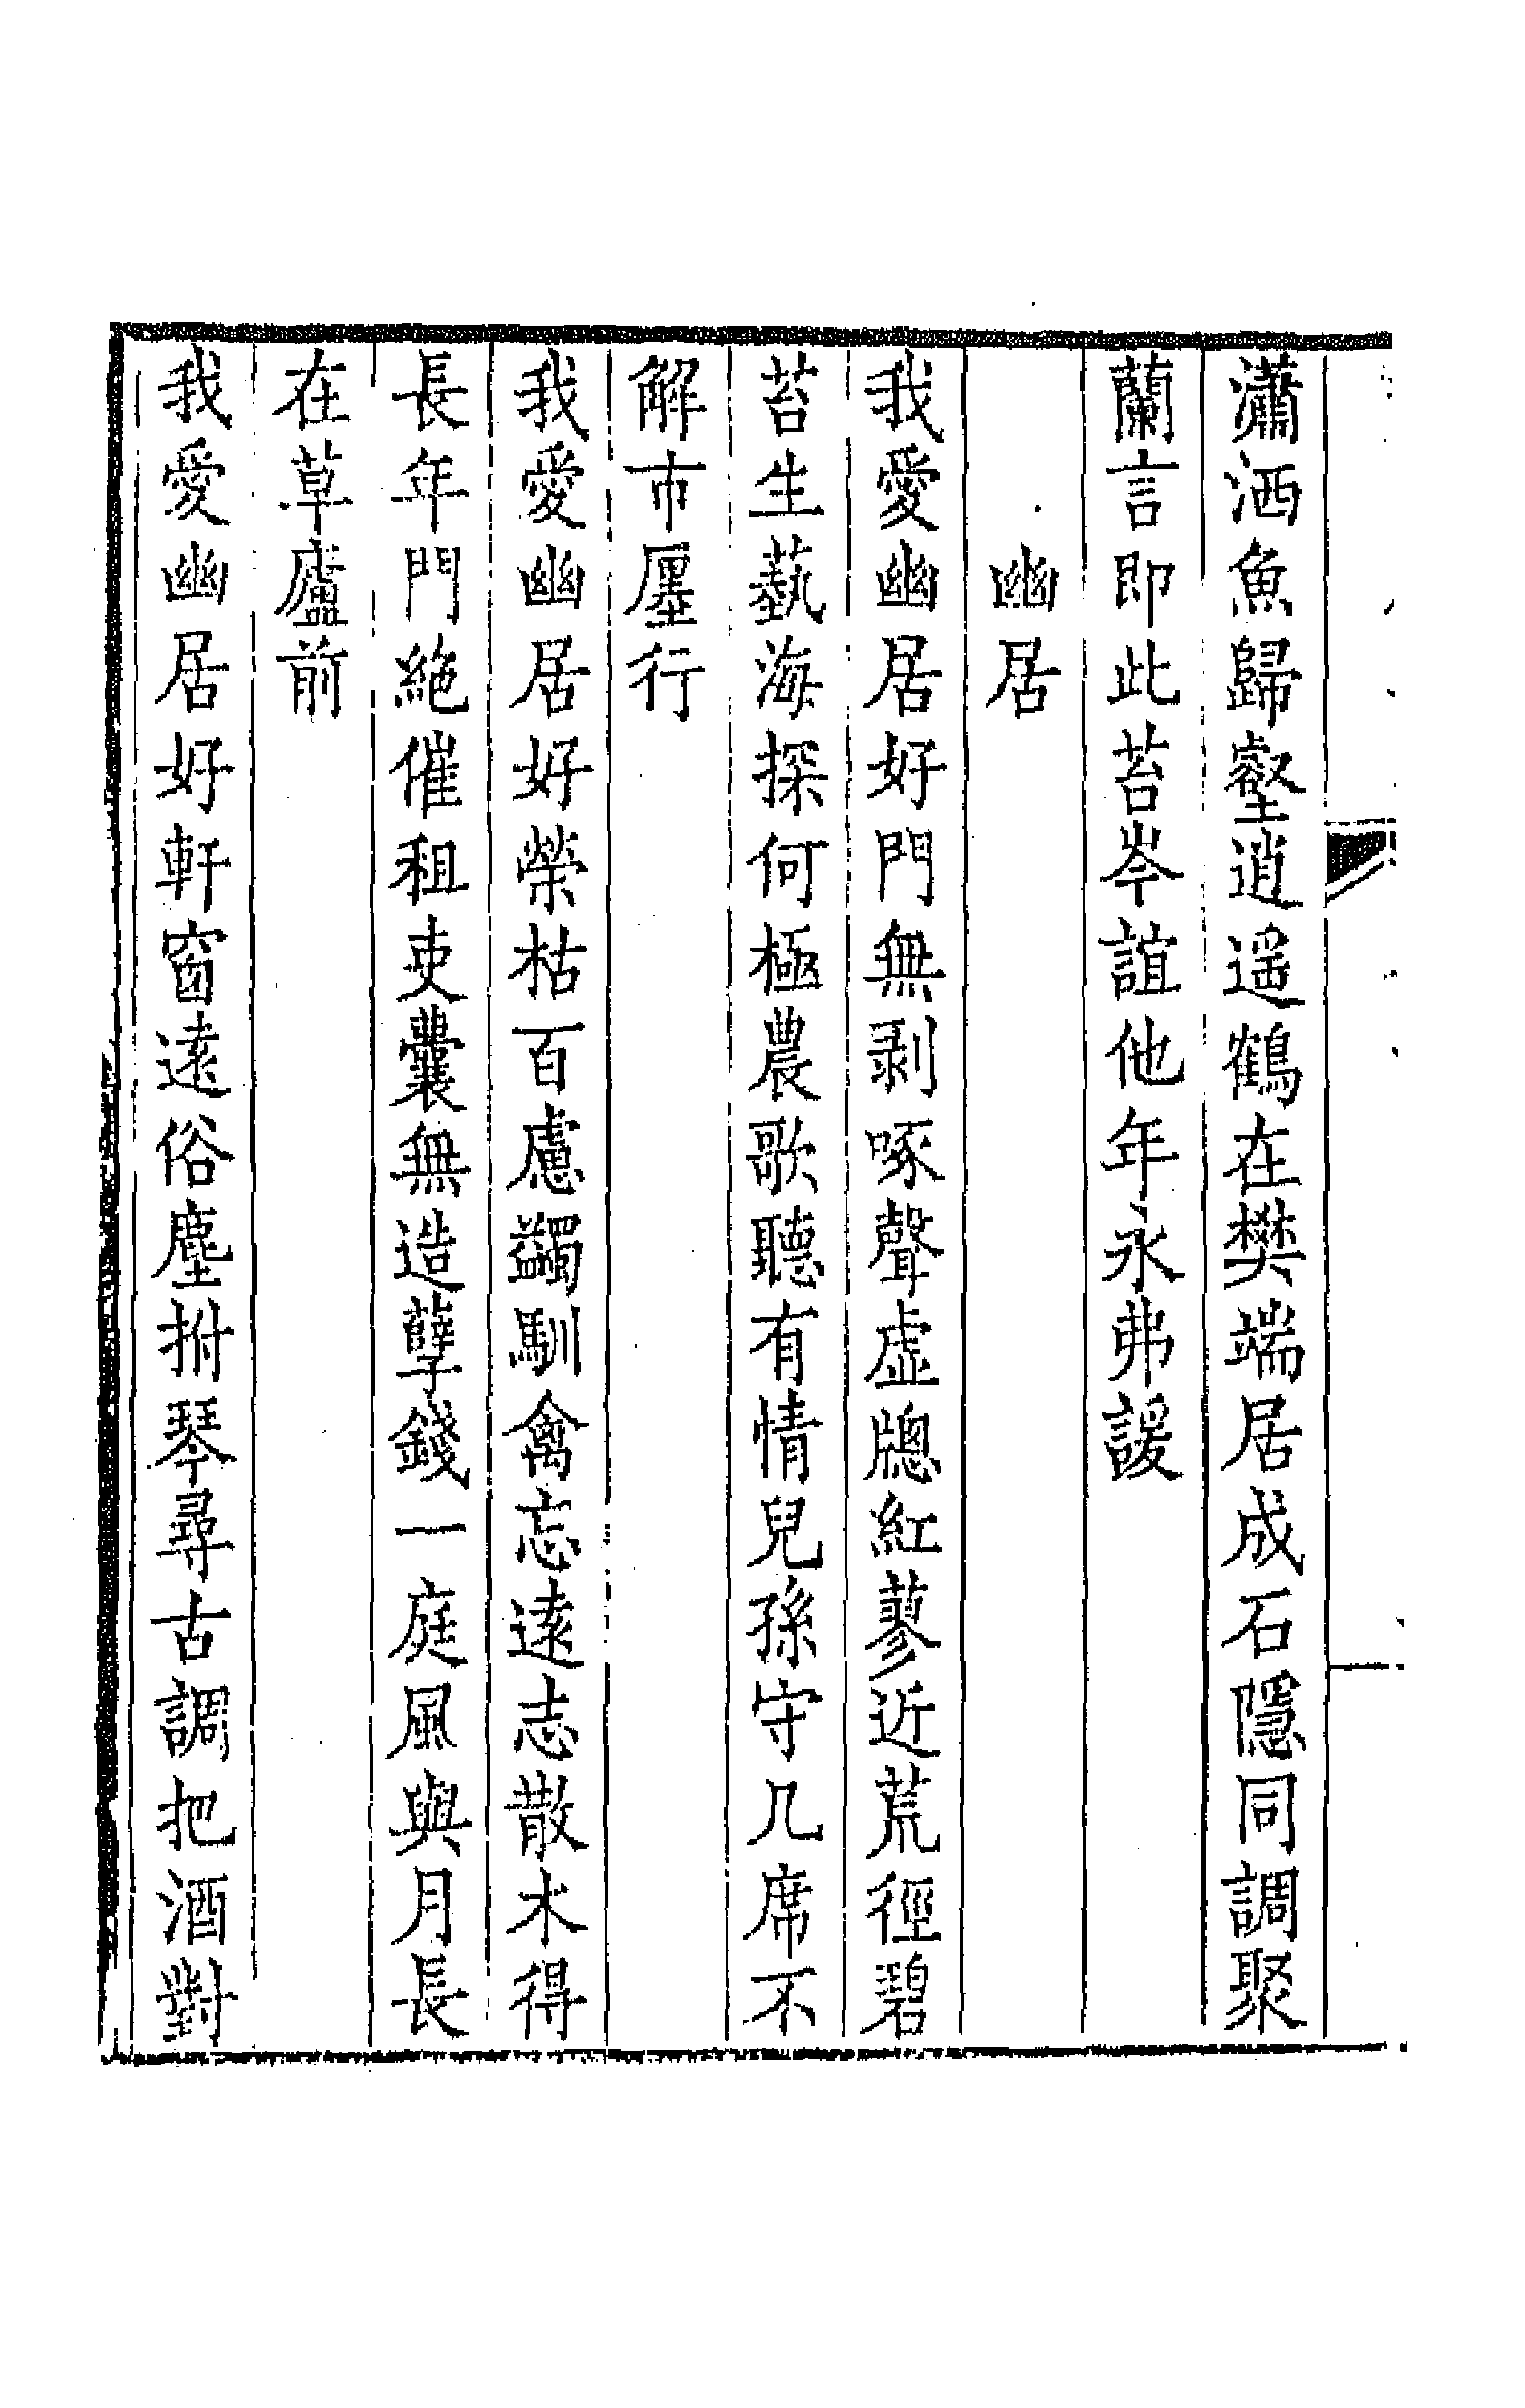 瀟洒魚歸壑逍遥鶴在樊端居成石隱同調聚
蘭言即此苔岑誼他年永弗諼
幽居
我愛幽居好門無剥啄聲虚牕紅蓼近荒徑碧
苔生藝海探何極農歌聽有情兒孫守几席不
解市廛行
我愛幽居好榮枯百慮蠲馴禽忘逺志散木得
長年門絶催租吏囊無造孽錢一庭風與月長
在草廬前
我愛幽居好軒窗逺俗塵拊琴尋古調把酒對